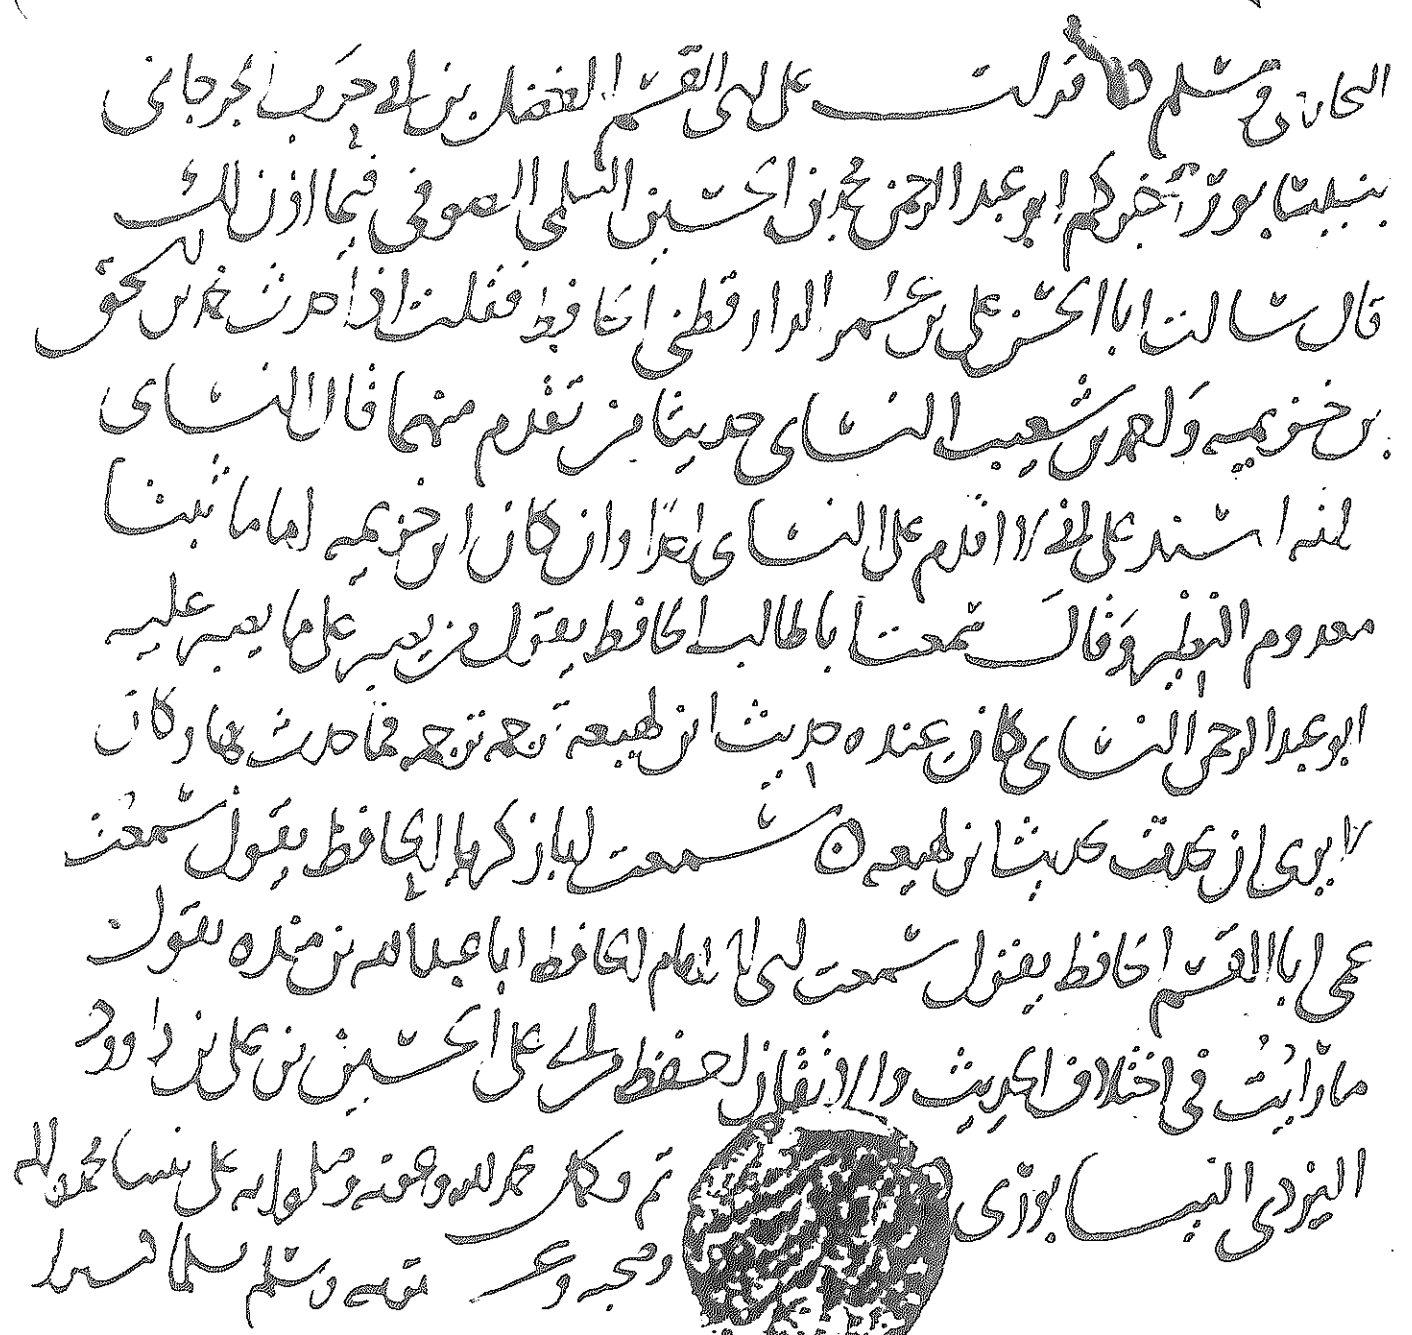 البخاري ومسلم ه قرات على ابي القسم الفضل بن ابي حرب الجرجاني
بنيسابور اخبركم ابو عبد الرحمن محمد بن الحسين السلمي الصوفي فيما اذن لك
قال سالت ابا الحسن علي بن عمر الدارقطني الحافظ فقلت اذا حدث محمد بن اسحق
بن خزيمه واحمد بن شعيب النساي حديثا من تقدم منهما قال النساي
لانه اسند على اني لا اقدم على النساي احدا وان كان ابن خزيمه اماما ثبتا
معدوم النظير وقال سمعت ابا طالب الحافظ يقول من يصبر على ما يصبر عليه
ابو عبد الرحمن النساي كان عنده حديث ابن لهيعه ترجمه ترجمه فما حدث بها وكان
لا يرى ان يحدث بحديث ابن لهيعه ه سمعت ابا زكريا الحافظ يقول سمعت
عمي ابا القسم الحافظ يقول سمعت ابي الامام الحافظ ابا عبد الله بن منده يقول
ما رايت في اختلاف الحديث والاتقان احفظ من ابي علي الحسين بن علي بن داوود
اليزدي النيسابوري
تم وكمل بحمد الله وعونه وصلواته على نبينا محمد واله
وصحبه وسلم تسليما